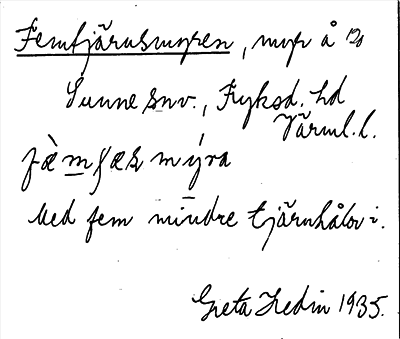 Femtjärnsmyren, myr å 120
Sunne snv., Fryksd. hd
Värml. l.
fæ̀mʃæɳ mýra
Med fem mindre tjärnhålor i.
Greta Hedin 1935.